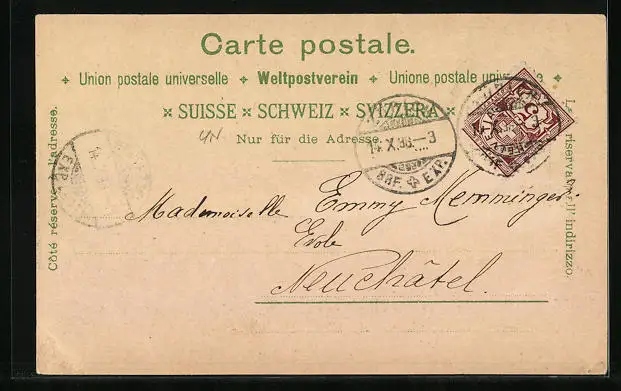 Carte postale.
Union postale universelle Weltpostverein Unione postale universale
SUISSE × SCHWEIZ × SVIZZERA
Nur für die Adresse.
Côté réservé à l'adresse.
14.X.98.—3
BRF. EXP.
EXP.
Mademoiselle Emmy Memminger
Evole
Neuchâtel.
Lato riservato all'indirizzo.